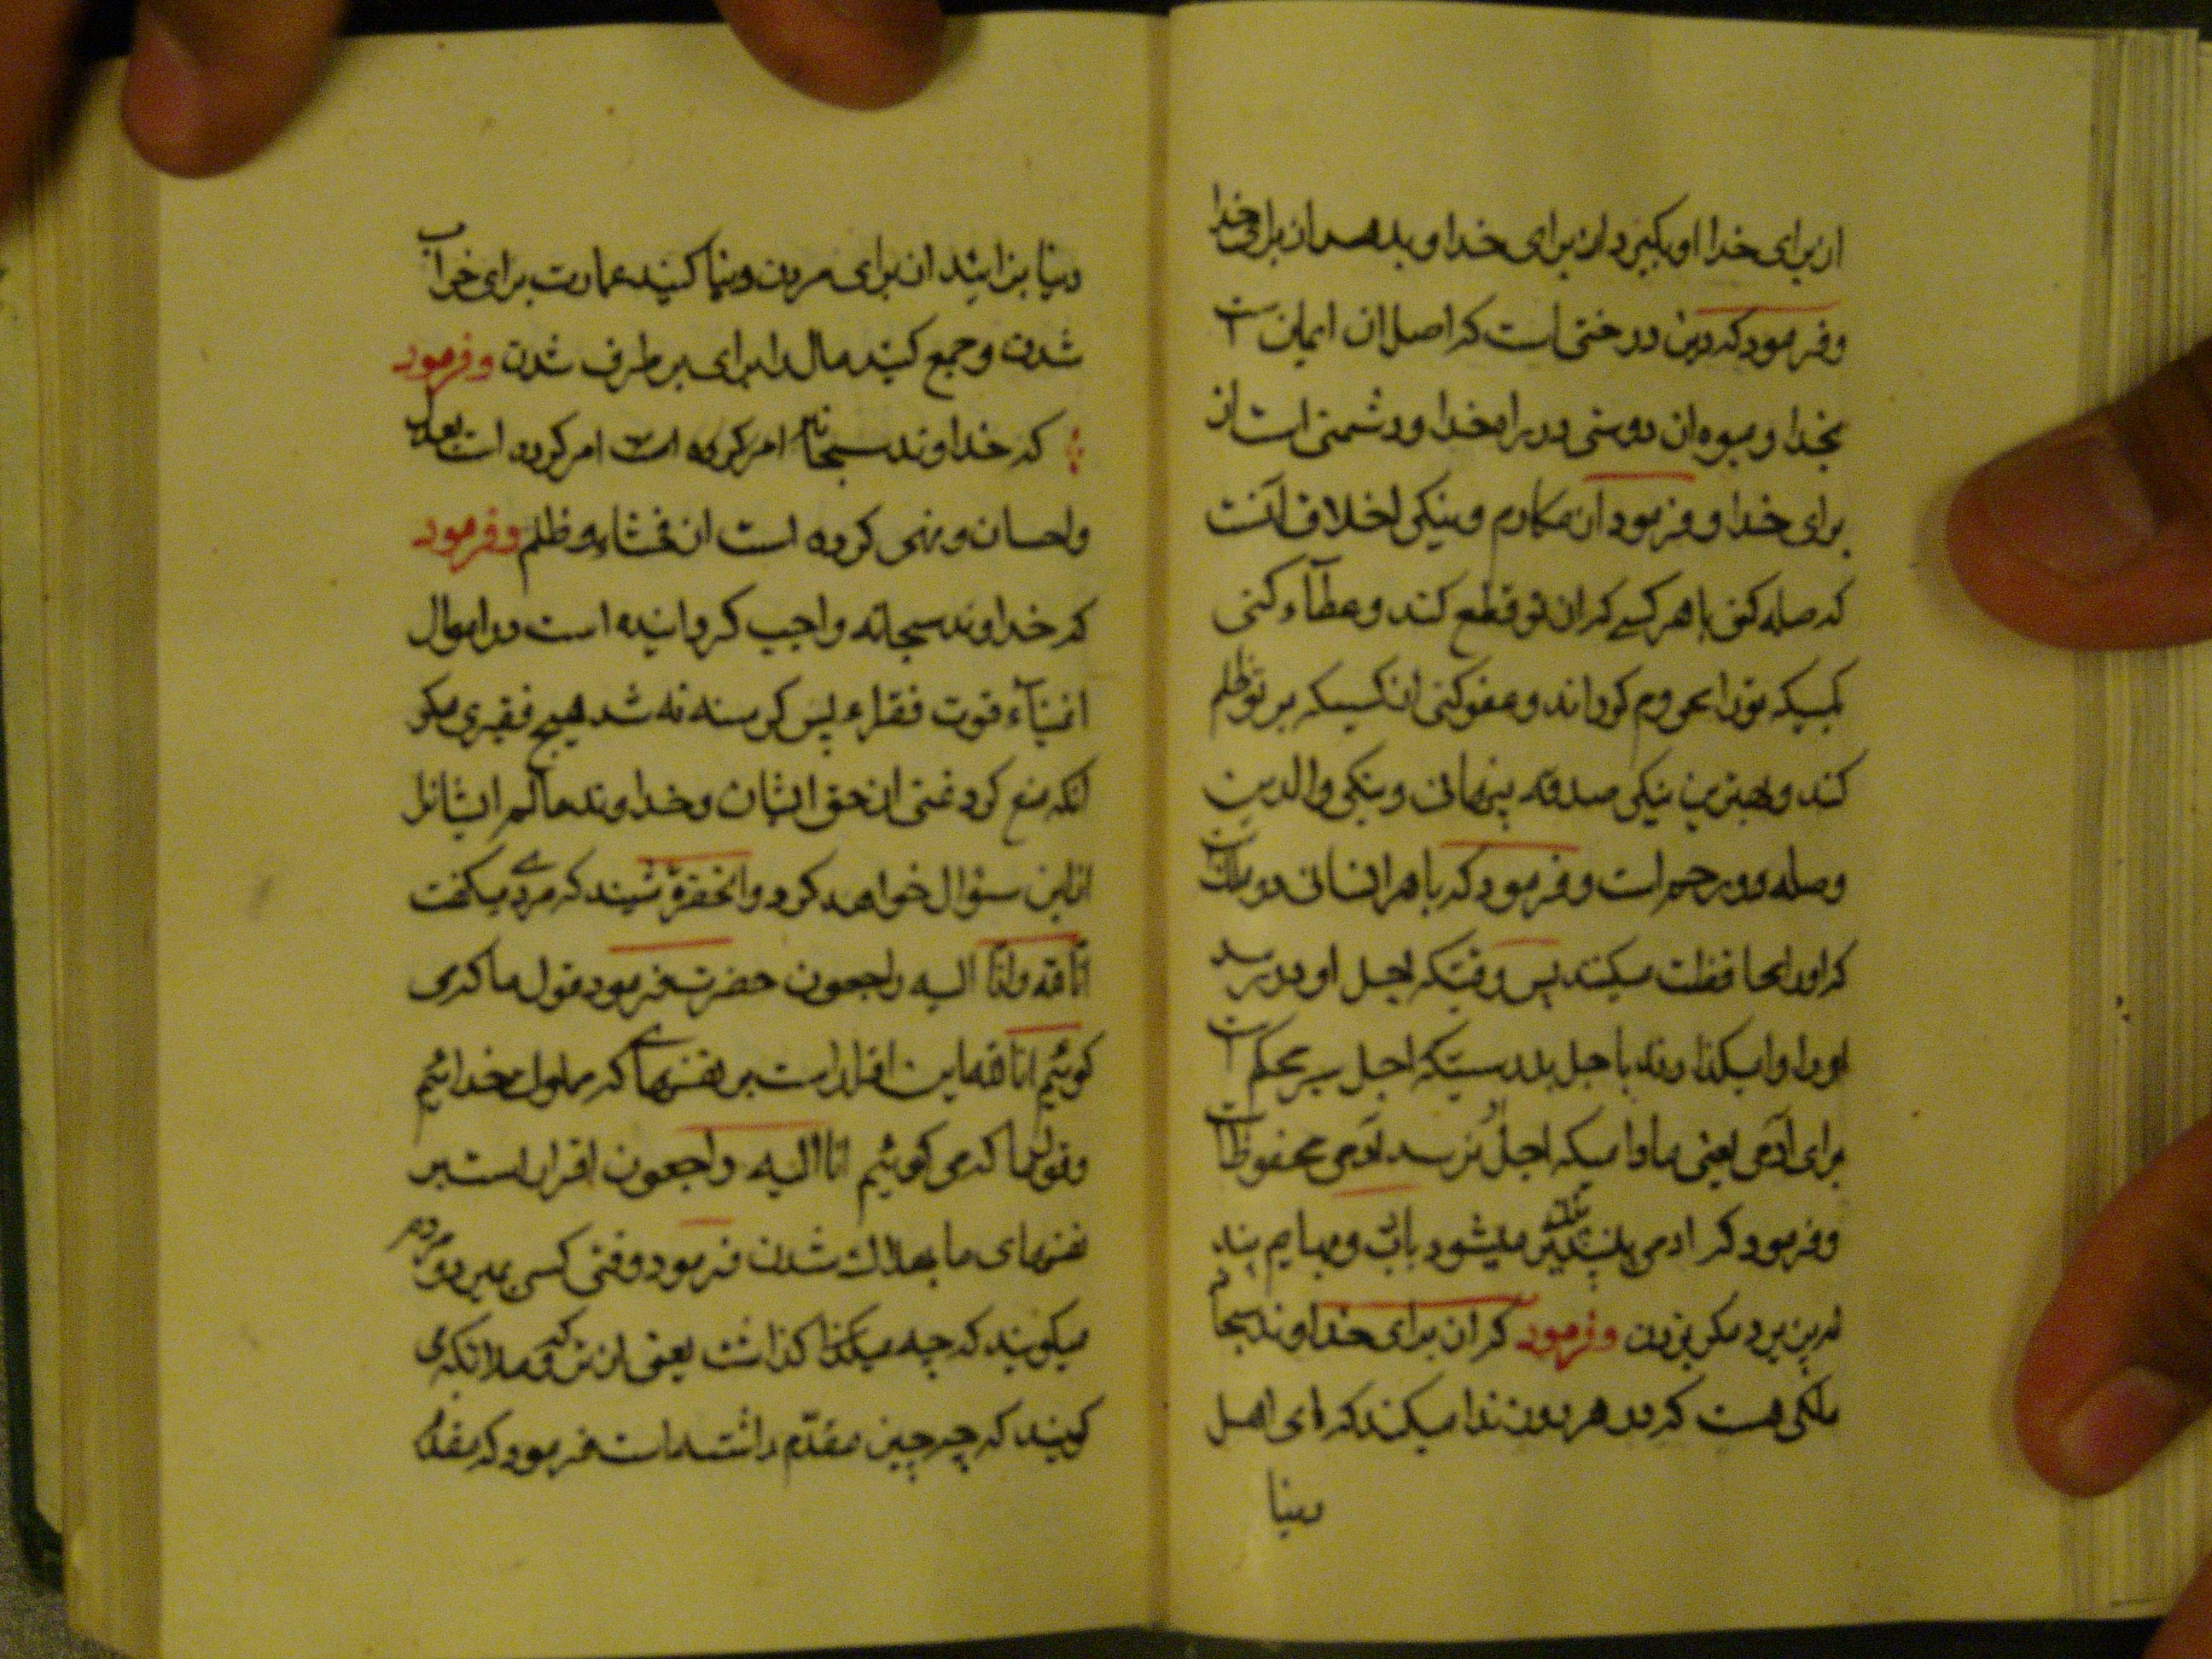 از برای خدا او بگیرد از برای خدا و بدهد از برای خدا
وفرمود که دین درختی است که اصل ان ایمان است
بخدا و میوه ان دوستی در راه خدا و دشمنی است از
برای خدا و فرمود از مکارم و نیکی اخلاق آنست
که صله کنی با هر کسے که از تو قطع کند و عطآء کنی
بکسیکه تو را محروم کرداند و عفو کنی از کسیکه بر تو ظلم
کند و بهترین نیکی صدقه پنهانی و نیکی والدین
وصله ورحم است و فرمود که با هر انسانی دو ملک است
که او را محافظت میکنند پس وقتیکه اجل او در رسد
او را وامیکذارند با جل بدرستیکه اجل سپر محکم است
برای آدمی یعنی مادامیکه اجل نرسد آدمی محفوظ است
وفرمود که ادمی پند میشود باب و بهایم پند
پذیرد مکر بزدن وفرمود که از برای خداوند سبحانه
ملکی هست که در هر روز ندا میکند که ای اهل
دنیا
دنیا بزائید از برای مردن و بنا کنید عمارت برای خراب
شدن و جمع کنید مال را برای بر طرف شدن وفرمود
که خداوند سبحانه امر کرده است امر کرده است بعدل
واحسان و نهی کرده است از فحشاء و ظلم وفرمود
که خداوند سبحانه واجب کردانیده است در اموال
اغنیآء قوت فقراء پس کرسنه نه شد هیچ فقیری مکر
انکه منع کرد غنی از حق ایشان و خداوند عالم ایشانرا
از این سئوال خواهد کرد و انحضرة شنید که مردے میکفت
انّا لله وانّا الیه راجعون حضرت فرمود قول ما که می
کوئیم انا لله این اقرار است بر نفسهاے که مملوک خدائیم
وقول ما که می کوئیم انا الیه راجعون اقرار است بر
نفسهای ما بهلاک شدن فرمود وقتی کسی بمیرد مردم
میکویند که چه میکذا کذاشت یعنی از ترکه و ملائکه می
کویند که چه چیز مقدّم داشته است فرمود که مقدم